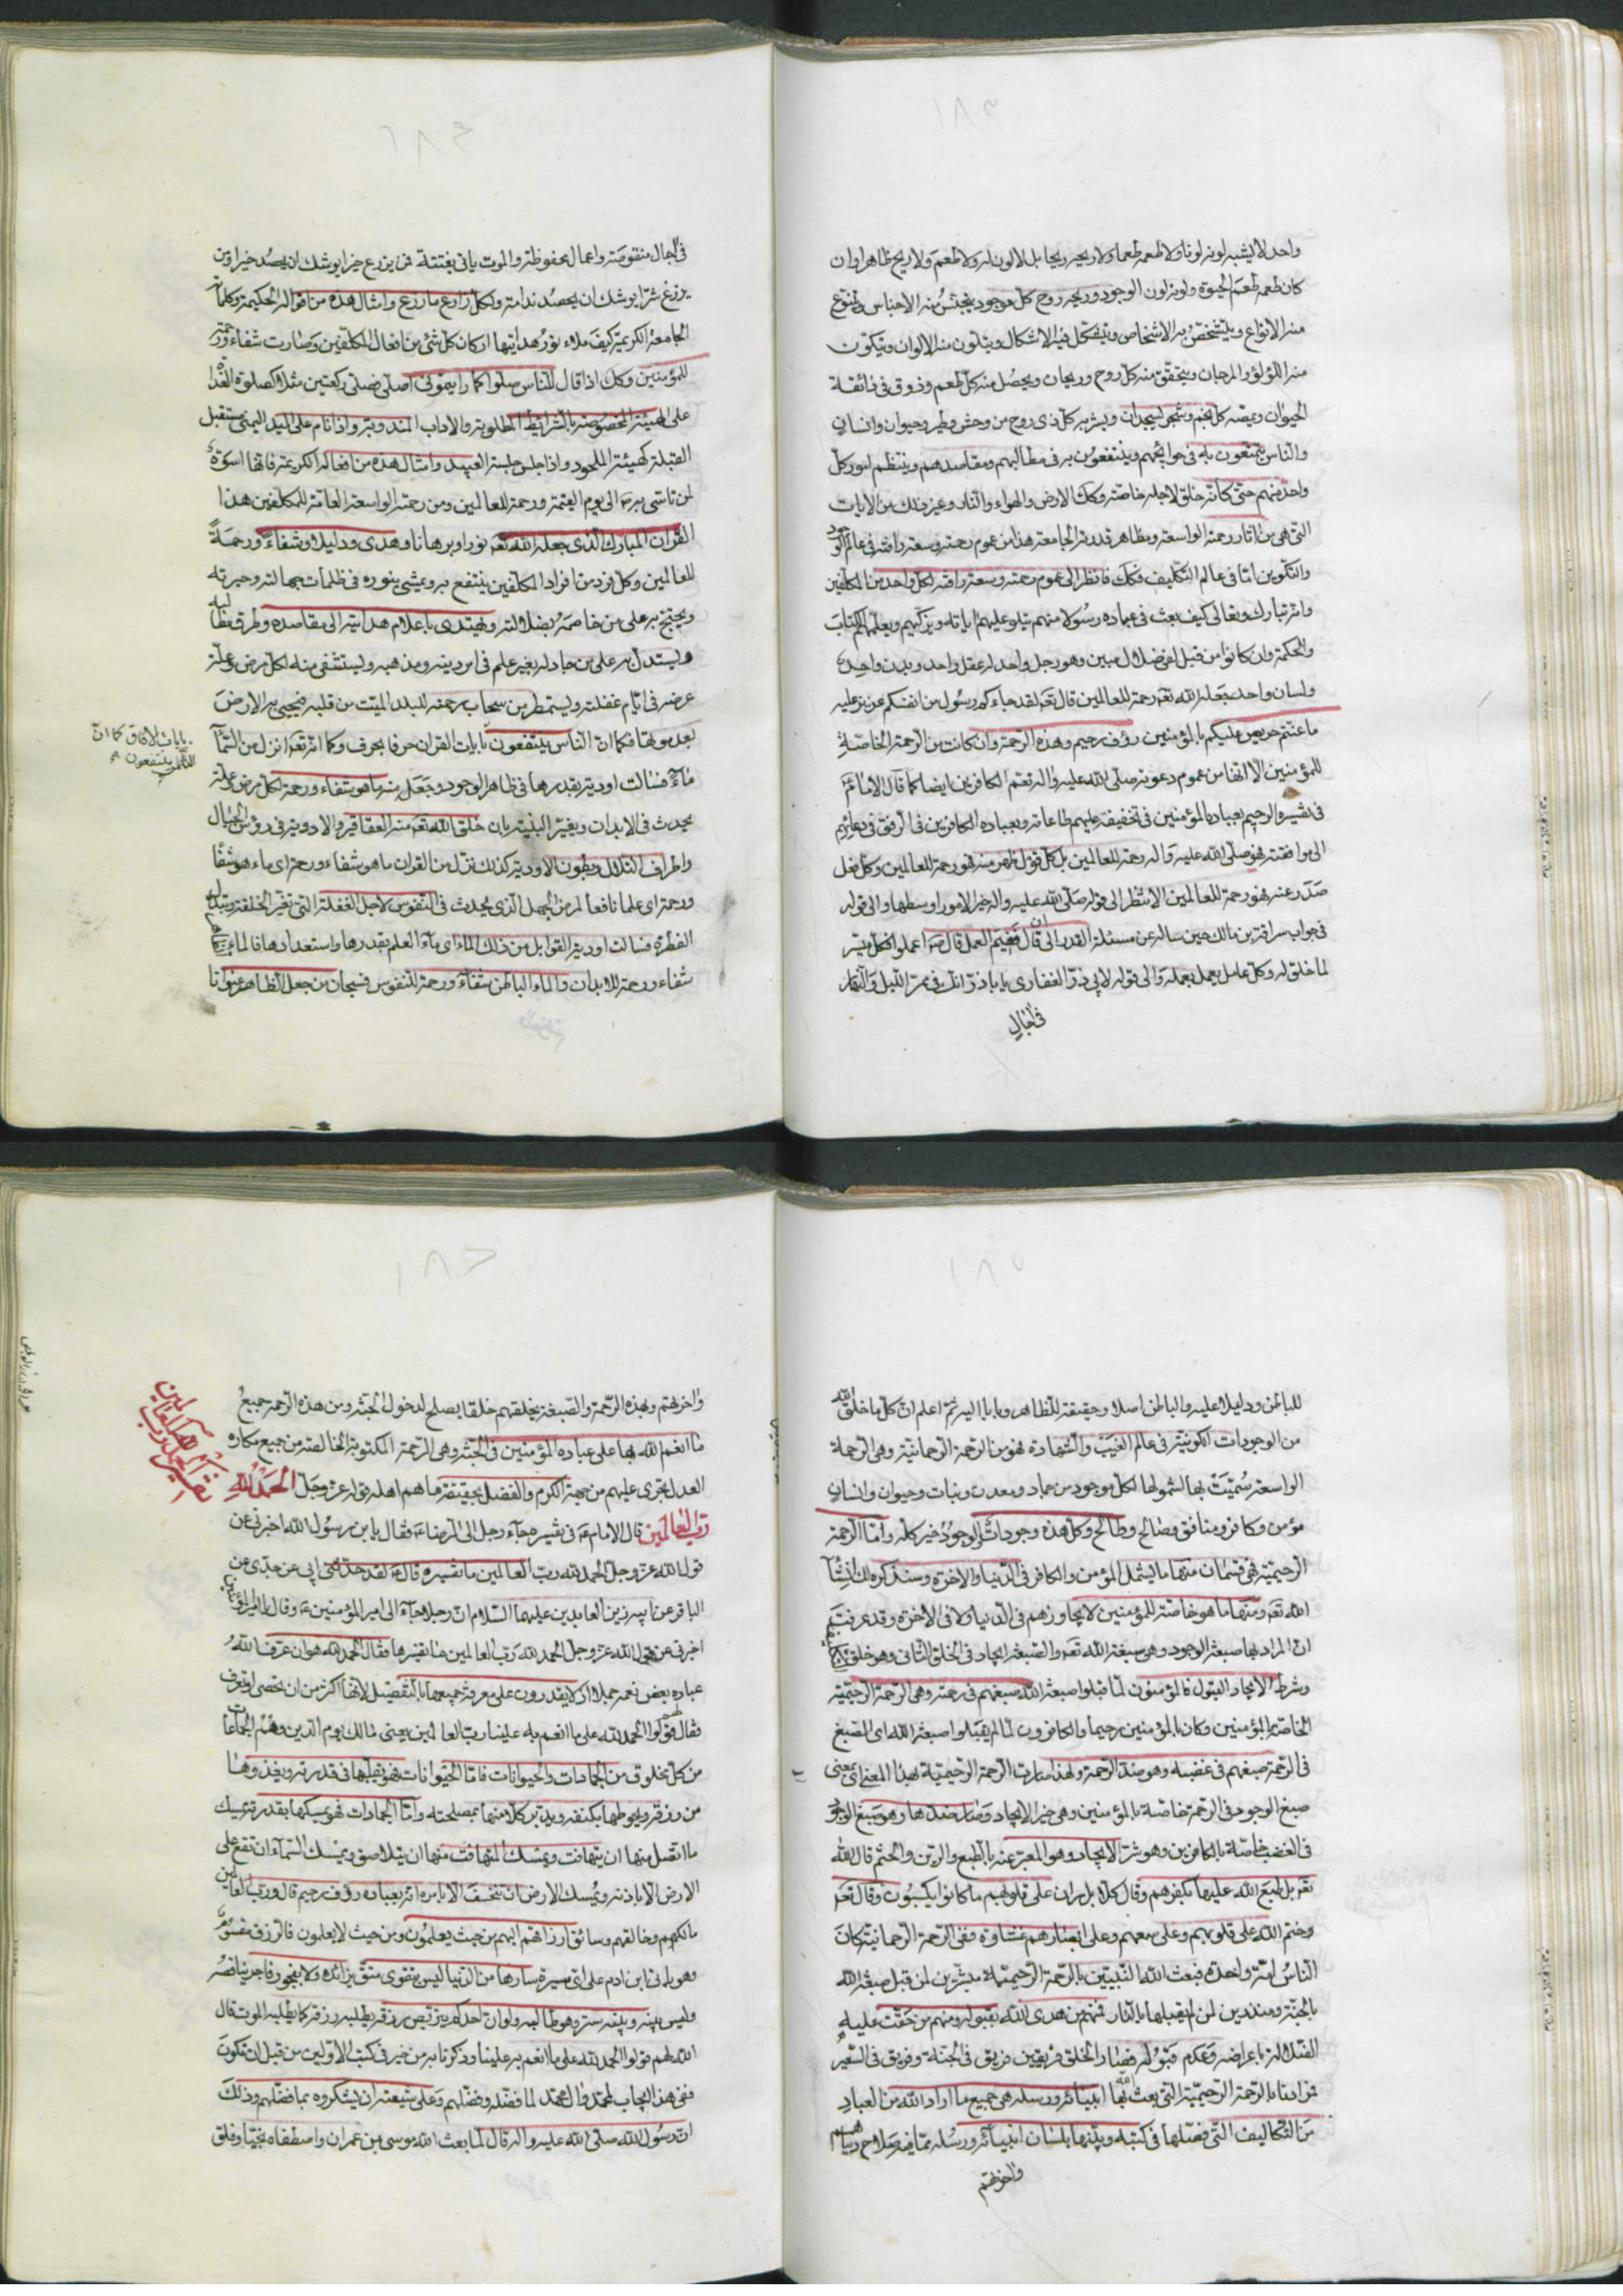 ١٨٣
واحد لا يشبه لونه لونا ولا طعمه طعما ولا ريحه ريحا بل لا لون له ولا طعم ولا ريح ظاهرا وان
كان طعمه طعم الحيوة ولونه لون الوجود وريحه روح كل موجود يتجنس منه الاجناس ويتنوع
منه الانواع ويتشخص به الاشخاص ويتشكل فيه الاشكال ويتلون منه الالوان ويتكون
منه اللؤلؤ والمرجان ويتحقق منه كل روح وريحان ويحصل منه كل طعم وذوق في ذائقة
الحيوان ويمصه كل نجم وشجر يسجدان ويشربه كل ذي روح من وحش وطير وحيوان وانسان
والناس يتمتعون به في حوائجهم وينتفعون به في مطالبهم ومقاصدهم وينتظم امور كل
واحد منهم حتى كانه خلق لاجله خاصة وكك الارض والهواء والنار وغير ذلك من الايات
التي هي من اثار رحمة الواسعة ومظاهر قدرته الجامعة هذا من عموم رحمته وسعة رافته في عالم الوجود
والتكوين اما في عالم التكليف فكك فانظر الى عموم رحمته وسعة رافته لكل واحد من المكلفين
وانه تبارك وتعالى كيف بعث في عباده رسولا منهم يتلو عليهم اياته ويزكيهم ويعلمهم الكتاب
والحكمة وان كانوا من قبل لفي ضلال مبين وهو رجل واحد له عقل واحد وبدن واحد
ولسان واحد جعله الله تعه رحمة للعالمين قال تعه لقد جاءكم رسول من انفسكم عزيز عليه
ما عنتم حريص عليكم بالمؤمنين رؤف رحيم وهذه الرحمة وان كانت من الرحمة الخاصة
للمؤمنين الا انها من عموم دعوته صلى الله عليه واله تعم الكافرين ايضا كما قال الامام ع
في تفسيره الرحيم بعباده المؤمنين في تخفيفه عليهم طاعاته وبعباده الكافرين في الرفق في دعائهم
الى موافقته فهو صلى الله عليه واله رحمة للعالمين بل كل قول ظهر منه فهو رحمة للعالمين وكل فعل
صدر عنه فهو رحمة للعالمين الا تنظر الى قوله صلى الله عليه واله خير الامور اوسطها والى قوله
في جواب سراقة بن مالك حين ساله عن مسئلة القدر الى ان قال ففيم العمل قال ص اعملوا فكل ميسر
لما خلق له وكل عامل يعمل بعمله والى قوله لابي ذر الغفاري يا باذر انك في ممر الليل والنهار
في اجال
١٨٤
في اجال منقوصة واعمال محفوظة والموت ياتي بغتة فمن يزرع خيرا يوشك ان يحصد خيرا ومن
يزرع شرا يوشك ان يحصد ندامة ولكل زارع ما زرع وامثال هذه من اقواله الحكيمة وكلماته
الجامعة الكريمة كيف ملاء نور هدايتها اركان كل شئ من افعال المكلفين وصارت شفاء ورحمة
للمؤمنين وكك اذا قال للناس صلوا كما رايتموني اصلي فصلى ركعتين مثلا كصلوة الغداة
على الهيئة المخصوصة بالشرائط المطلوبة والاداب المندوبة واذا نام على اليد اليمنى مستقبل
القبلة كهيئة الملحود واذا جلس جلسة العبيد وامثال هذه من افعاله الكريمة فانها اسوة
لمن تاسى به الى يوم القيمة ورحمة للعالمين ومن رحمته الواسعة العامة للمكلفين هذا
القران المبارك الذي جعله الله تعه نورا وبرهانا وهدى ودليلا وشفاء ورحمة
للعالمين وكل فرد من افراد المكلفين ينتفع به ويمشي بنوره في ظلمات جهالته وحيرته
ويحتج به على من خاصمه بضلالته ويهتدي باعلام هدايته الى مقاصده وطرق مطالبه
ويستدل به على من جادله بغير علم في امر دينه ومذهبه ويستشفي منه لكل مرض وعلة
عرضه في ايام غفلته ويستمطر من سحاب رحمته للبلد الميت من قلبه فيحيي به الارض
بعد موتها فكما ان الناس ينتفعون بايات القران حرفا بحرف وكما انه تعه انزل من السماء
بايات الافاق كما ان
الناس ينتفعون
ماء فسالت اودية بقدرها في ظاهر الوجود وجعل منه ما هو شفاء ورحمة لكل مرض وعلة
يحدث في الابدان وبغير البنية بان خلق الله تعه منه العقاقير والادوية في رؤس الجبال
واطراف التلال وبطون الاودية كذلك نزل من القران ما هو شفاء ورحمة اي ماء هو شفاء
ورحمة اي علما نافعا لمرض الجهل الذي يحدث في النفوس لاجل الغفلة التي تغير الخلقة وتبدل
الفطرة فسالت اودية القوابل من ذلك الماء اي ماء العلم بقدرها واستعدادها فالماء
شفاء ورحمة للابدان والماء الباطن شفاء ورحمة للنفوس فسبحان من جعل الظاهر عنوانا
١٨٥
للباطن ودليلا عليه والباطن اصلا وحقيقة للظاهر وبابا اليه ثم اعلم ان كل ما خلق الله
من الوجودات الكونية في عالم الغيب والشهادة فهو من الرحمة الرحمانية وهي الرحمة
الواسعة سميت بها لشمولها لكل موجود من جماد ومعدن ونبات وحيوان وانسان
مؤمن وكافر ومنافق وصالح وطالح وكل هذه وجودات والوجود خير كله واما الرحمة
الرحيمية فهي قسمان منها ما يشمل المؤمن والكافر في الدنيا والاخرة وسنذكره لك انشاء
الله تعه ومنها ما هو خاصة للمؤمنين لا يجاوزهم في الدنيا ولا في الاخرة وقد عرفت
ان المراد بها صبغة الوجود وهي صبغة الله تعه والصبغة ايجاد في الخلق الثاني وهو خلق
وشرط الايجاد القبول فالمؤمنون لما قبلوا صبغة الله صبغهم في رحمته وهي الرحمة الرحيمية
الخاصة بالمؤمنين وكان بالمؤمنين رحيما والكافرون لما لم يقبلوا صبغة الله اي الصبغ
في الرحمة صبغهم في غضبه وهو ضد الرحمة ولهذا صارت الرحمة الرحيمية بهذا المعنى اي بمعنى
صبغ الوجود في الرحمة خاصة بالمؤمنين وهي خير الايجاد وصار ضدها وهو صبغ الوجود
في الغضب خاصة بالكافرين وهو شر الايجاد وهو المعبر عنه بالطبع والرين والختم قال الله
تعه بل طبع الله عليها بكفرهم وقال كلا بل ران على قلوبهم ما كانوا يكسبون وقال تعه
وختم الله على قلوبهم وعلى سمعهم وعلى ابصارهم غشاوة ففي الرحمة الرحمانية كان
الناس امة واحدة فبعث الله النبيين بالرحمة الرحيمية مبشرين لمن قبل صبغة الله
بالجنة ومنذرين لمن لم يقبلها بالنار فمنهم من هدى الله بقبوله ومنهم من حقت عليه
الضلالة باعراضه وعدم قبوله فصار الخلق فريقين فريق في الجنة وفريق في السعير
فمرادنا بالرحمة الرحيمية التي بعث بها انبيائه ورسله هي جميع ما اراد الله من العباد
من التكاليف التي فصلها في كتبه وبينها بلسان انبيائه ورسله مما فيه صلاح دنياهم
واخرتهم
١٨٦
واخرتهم وبهذه الرحمة والصبغة يخلقهم خلقا يصلح لدخول الجنة ومن هذه الرحمة جميع
ما انعم الله بها على عباده المؤمنين في الجنة وهي الرحمة المكتوبة الخالصة من جميع مكاره
العدل يجري عليهم من جهة الكرم والفضل بحقيقة ما هم اهله قوله عز وجل الحمد لله
تفسير الحمد لله رب العالمين
رب العالمين قال الامام ع في تفسيره جاء رجل الى الرضا ع فقال يا بن رسول الله اخبرني عن
قول الله عز وجل الحمد لله رب العالمين ما تفسيره قال ع لقد حدثني ابي عن جدي عن
الباقر عن ابيه زين العابدين عليهما السلام ان رجلا جاء الى امير المؤمنين ع وقال يا امير المؤمنين
اخبرني عن قول الله عز وجل الحمد لله رب العالمين ما تفسيرها فقال الحمد لله هو ان عرف الله
عباده بعض نعمه جملا اذ لا يقدرون على معرفة جميعها بالتفصيل لانها اكثر من ان يحصى او يعرف
فقال لهم قولوا الحمد لله على ما انعم به علينا رب العالمين يعني مالك يوم الدين وهم الجماعات
من كل مخلوق من الجمادات والحيوانات فاما الحيوانات فهو يقلبها في قدرته ويغذوها
من رزقه ويحوطها بكنفه ويدبر كلا منها بمصلحته واما الجمادات فهو يمسكها بقدرته يمسك
ما اتصل منها ان يتهافت ويمسك المتهافت منها ان يتلاصق ويمسك السماء ان تقع على
الارض الا باذنه ويمسك الارض ان تنخسف الا بامره انه بعباده رؤف رحيم قال ورب العالمين
مالكهم وخالقهم وسائق ارزاقهم اليهم من حيث يعلمون ومن حيث لا يعلمون فالرزق مقسوم
وهو ياتي ابن ادم على اي سيرة سارها من الدنيا ليس بتقوى متق بزائده ولا بفجور فاجر بناقصه
وليس بينه وبينه ستر وهو طالبه ولو ان احدكم يتربص رزقه يطلبه رزقه كما يطلبه الموت قال
الله لهم قولوا الحمد لله على ما انعم به علينا وذكرنا به من خير في كتب الاولين من قبل ان نكون
ففي هذا ايجاب لمحمد وال محمد لما فضله وفضلهم وعلى شيعته ان يشكروه بما فضلهم وذلك
ان رسول الله صلى الله عليه واله قال لما بعث الله موسى بن عمران واصطفاه نجيا وفلق